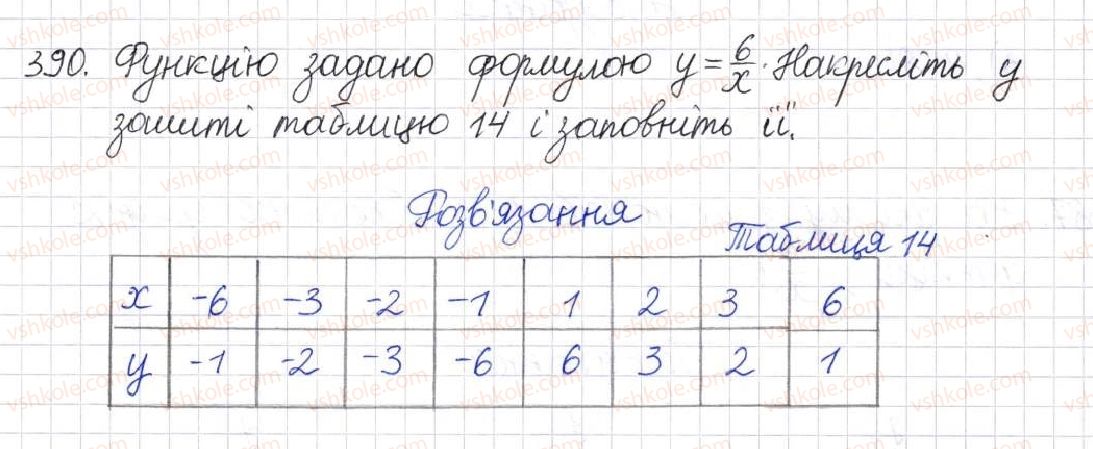 390. Функцію задано формулою y=6/x. Накресліть у
зошиті таблицю 14 і заповніть її.
Розв'язання
Таблиця 14
x -6 -3 -2 -1 1 2 3 6
y -1 -2 -3 -6 6 3 2 1